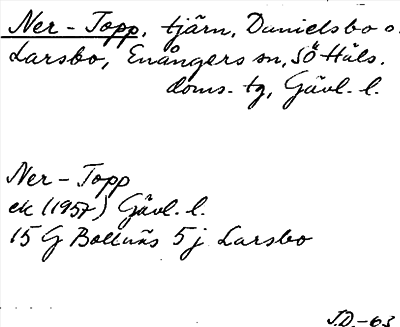 Ner-Topp, tjärn, Danielsbo o.
Larsbo, Enångers sn, SÖ Häls.
doms. tg, Gävl. l.
Ner-Topp
ek (1957) Gävl. l.
15 G Bollnäs 5 j Larsbo
J.D.-63